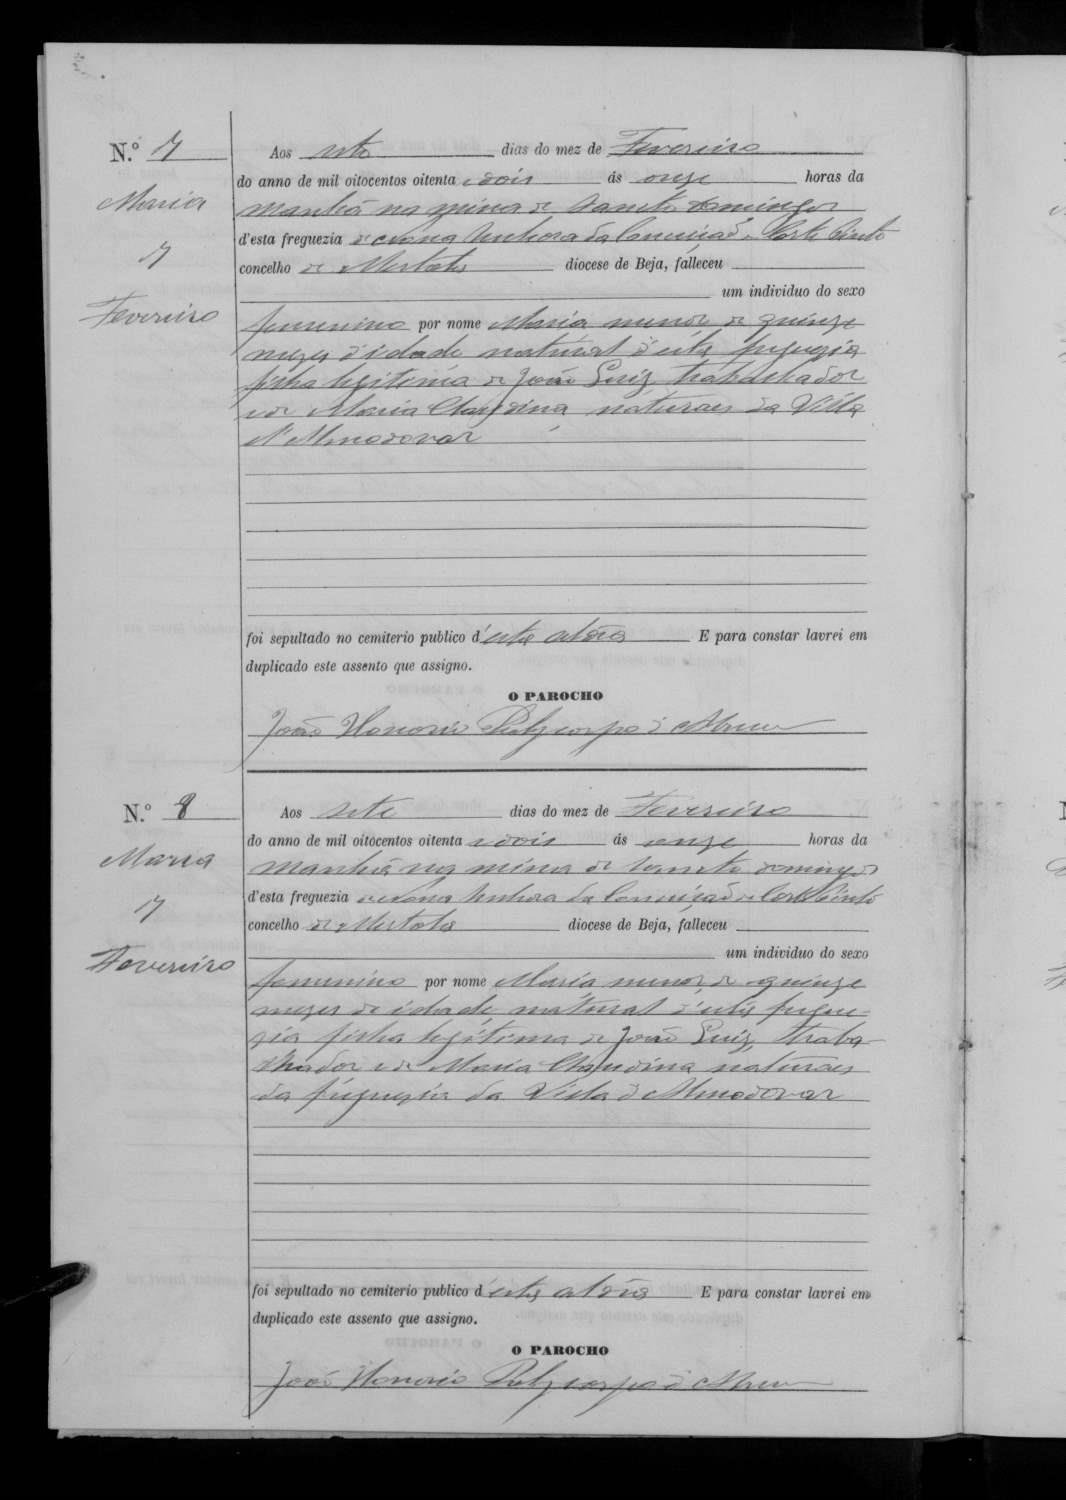 N.º 7
Maria
7
Fevereiro
Aos sete dias do mez de Fevereiro
do anno de mil oitocentos oitenta e dois ás onze horas da
manhã na mina de Sancto domingos
d'esta freguezia de Nossa Senhora da Conceição de Corte Pinto
concelho de Mertola diocese de Beja, falleceu
um individuo do sexo
femenino por nome Maria menor de quinze
mezes d'idade natural d'esta freguezia
filha legitima de João Luiz, trabalhador
e de Maria Claudina, naturaes da Villa
d'Almodovar
foi sepultado no cemiterio publico d'esta aldeia E para constar lavrei em
duplicado este assento que assigno.
O PAROCHO
João Honorio Polycarpo d'Abreu
N.º 8
Maria
7
Fevereiro
Aos sete dias do mez de Fevereiro
do anno de mil oitocentos oitenta e dois ás onze horas da
manhã na mina de Sancto domingos
d'esta freguezia de Nossa Senhora da Conceição de Corte Pinto
concelho de Mertola diocese de Beja, falleceu
um individuo do sexo
femenino por nome Maria menor de quinze
mezes de idade, natural d'esta fregue-
zia filha legitima de João Luiz, traba-
lhador e de Maria Claudina naturaes
da freguezia da Villa d'Almodovar
foi sepultado no cemiterio publico d'esta aldeia E para constar lavrei em
duplicado este assento que assigno.
O PAROCHO
João Honorio Polycarpo d'Abreu